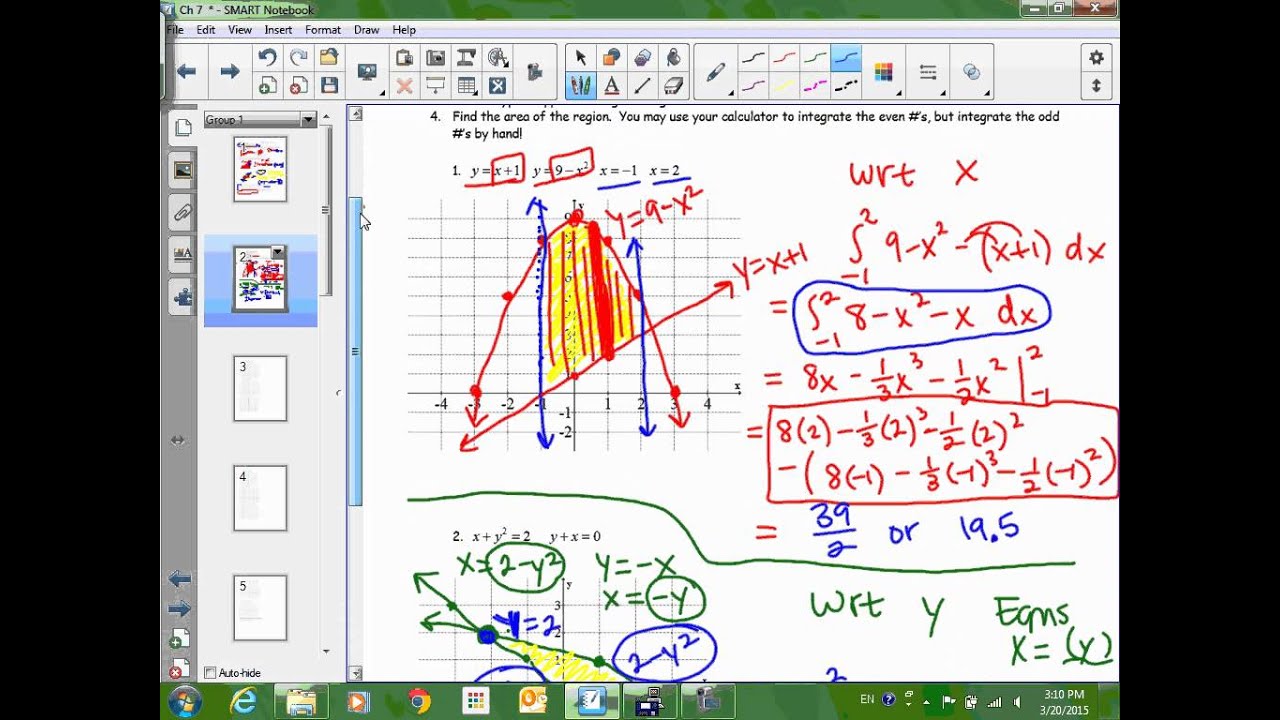 Ch 7 * - SMART Notebook
File Edit View Insert Format Draw Help
Group 1
4. Find the area of the region. You may use your calculator to integrate the even #'s, but integrate the odd
#'s by hand!
1. y = x+1 y = 9 − x² x = −1 x = 2
wrt x
y = 9 − x²
y = x+1
∫₋₁² 9 − x² − (x+1) dx
= ∫₋₁² 8 − x² − x dx
= 8x − 1/3 x³ − 1/2 x² |₋₁²
= 8(2) − 1/3 (2)³ − 1/2 (2)²
− (8(−1) − 1/3 (−1)³ − 1/2 (−1)²)
= 39/2 or 19.5
y
9
x
-4 -3 -2 -1 1 2 3 4
-1
-2
2. x + y² = 2 y + x = 0
x = 2 − y² y = −x
x = −y
wrt y Eqns
x = (x)
y
3
2
1
y = 2
2 − y²
2
1
2
3
4
5
Auto-hide
EN
3:10 PM
3/20/2015